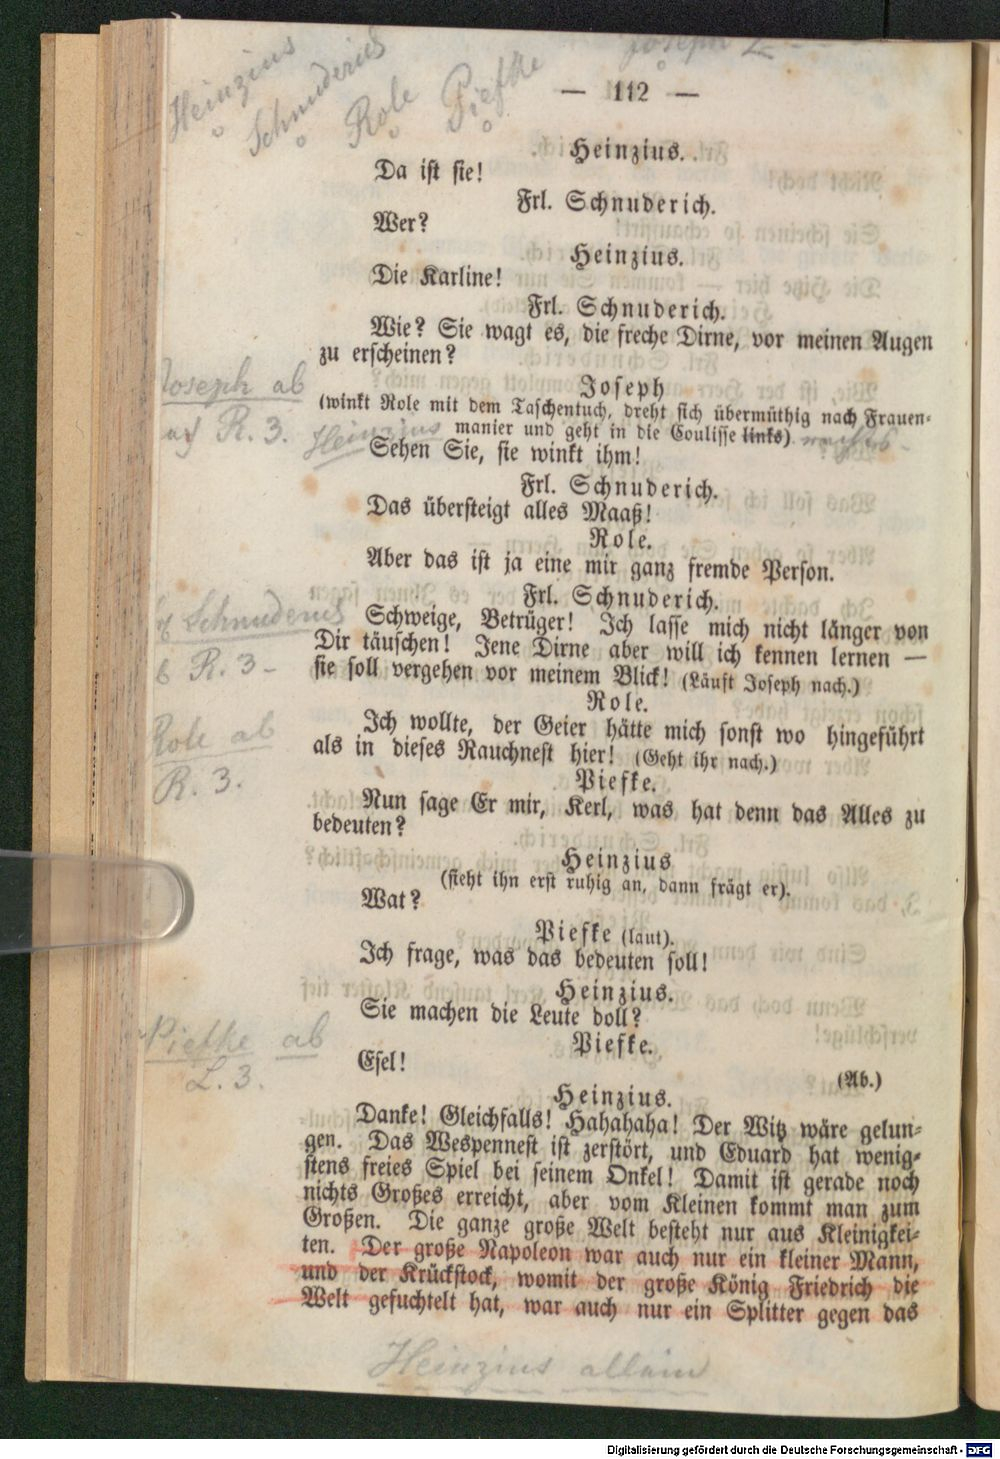 Heinzius
Role
Piefke
— 112 —
Heinzius.
Da ist sie!
Frl. Schnuderich.
Wer?
Heinzius.
Die Karline!
Frl. Schnuderich.
Wie? Sie wagt es, die freche Dirne, vor meinen Augen
zu erscheinen?
Joseph ab
R. 3.
Joseph
(winkt Role mit dem Taschentuch, dreht sich übermüthig nach Frauen-
manier und geht in die Coulisse links)
Heinzius
Sehen Sie, sie winkt ihm!
Frl. Schnuderich.
Das übersteigt alles Maaß!
Role.
Aber das ist ja eine mir ganz fremde Person.
Frl. Schnuderich.
Schweige, Betrüger! Ich lasse mich nicht länger von
Dir täuschen! Jene Dirne aber will ich kennen lernen —
sie soll vergehen vor meinem Blick! (Läuft Joseph nach.)
R. 3-
Role.
Ich wollte, der Geier hätte mich sonst wo hingeführt
als in dieses Rauchnest hier! (Geht ihr nach.)
Role ab
R. 3.
Piefke.
Nun sage Er mir, Kerl, was hat denn das Alles zu
bedeuten?
Heinzius
(sieht ihn erst ruhig an, dann frägt er).
Wat?
Piefke (laut).
Ich frage, was das bedeuten soll!
Heinzius.
Sie machen die Leute doll?
Piefke.
Esel!
(Ab.)
Piefke ab
L. 3.
Heinzius.
Danke! Gleichfalls! Hahahaha! Der Witz wäre gelun-
gen. Das Wespennest ist zerstört, und Eduard hat wenig-
stens freies Spiel bei seinem Onkel! Damit ist gerade noch
nichts Großes erreicht, aber vom Kleinen kommt man zum
Großen. Die ganze große Welt besteht nur aus Kleinigkei-
ten. Der große Napoleon war auch nur ein kleiner Mann,
und der Krückstock, womit der große König Friedrich die
Welt gefuchtelt hat, war auch nur ein Splitter gegen das
Heinzius allein
Digitalisierung gefördert durch die Deutsche Forschungsgemeinschaft - DFG